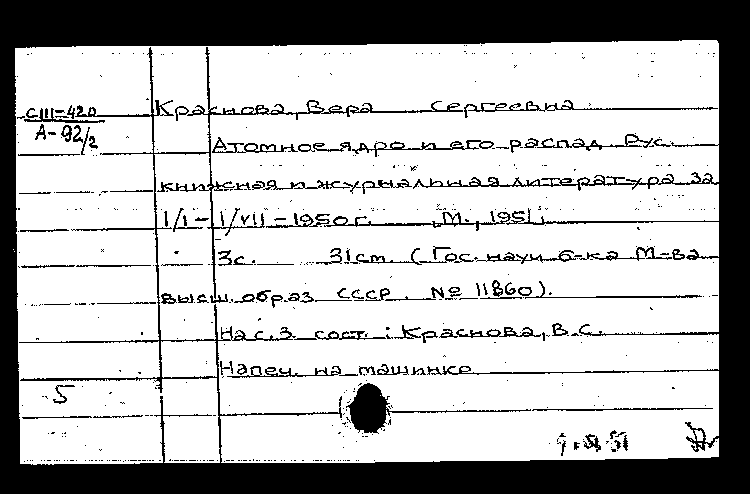 СIII-420
А-92/2
Краснова, Вера Сергеевна
Атомное ядро и его распад. Рус.
книжная и журнальная литература за
1/I - 1/VII - 1950г. М., 1951,
3с. 31ст. (Гос. науч. б-ка М-ва
высш. образ. СССР. № 11860).
На с.3 сост.: Краснова, В.С.
Напеч. на машинке
5